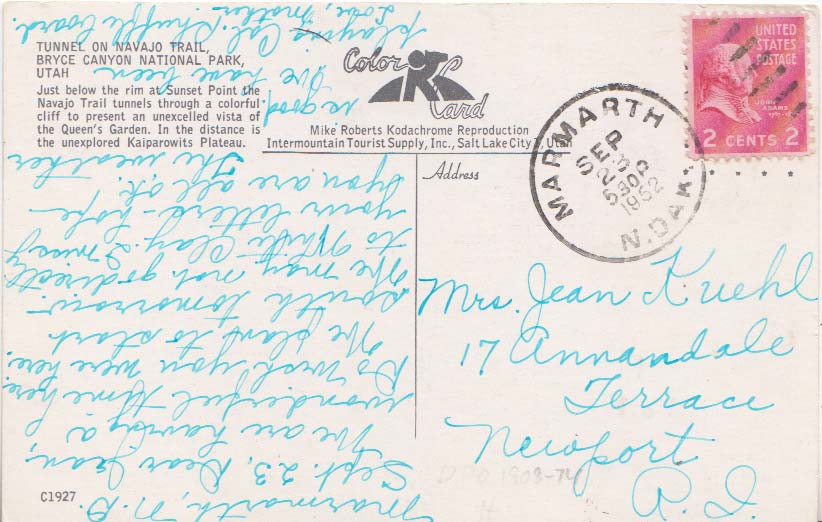 TUNNEL ON NAVAJO TRAIL,
BRYCE CANYON NATIONAL PARK,
UTAH
Just below the rim at Sunset Point the
Navajo Trail tunnels through a colorful
cliff to present an unexcelled vista of
the Queen's Garden. In the distance is
the unexplored Kaiparowits Plateau.
Color
Kard
Mike Roberts Kodachrome Reproduction
Intermountain Tourist Supply, Inc., Salt Lake City 5, Utah
Address
MARMARTH
SEP
23
530P
1952
N.DAK.
UNITED
STATES
POSTAGE
JOHN
ADAMS
2 CENTS 2
Mrs. Jean Kuehl
17 Annandale
Terrace
Newport
R.I.
DPO 1908-74
C1927
Marmarth, N.D.
Sept. 23, Dear Jean,
We are having a
wonderful time here.
Do wish you were here.
We plan to start
south tomorrow.
We may not go directly
to White Clay. I miss
your letters - hope
you are all ok.
The weather
is good
I've have been
playing Cal. Shuffle board.
Love, Mother